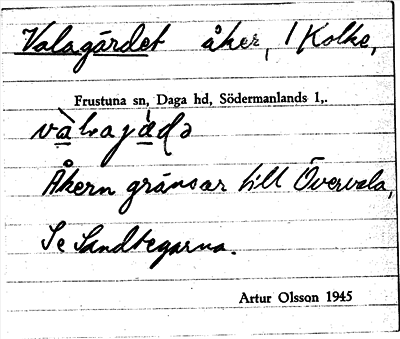 Valagärdet åker, 1 Kolke,
Frustuna sn, Daga hd, Södermanlands l,.
Åkern gränsar till Övervala,
Se Sandtegarna.
Artur Olsson 1945